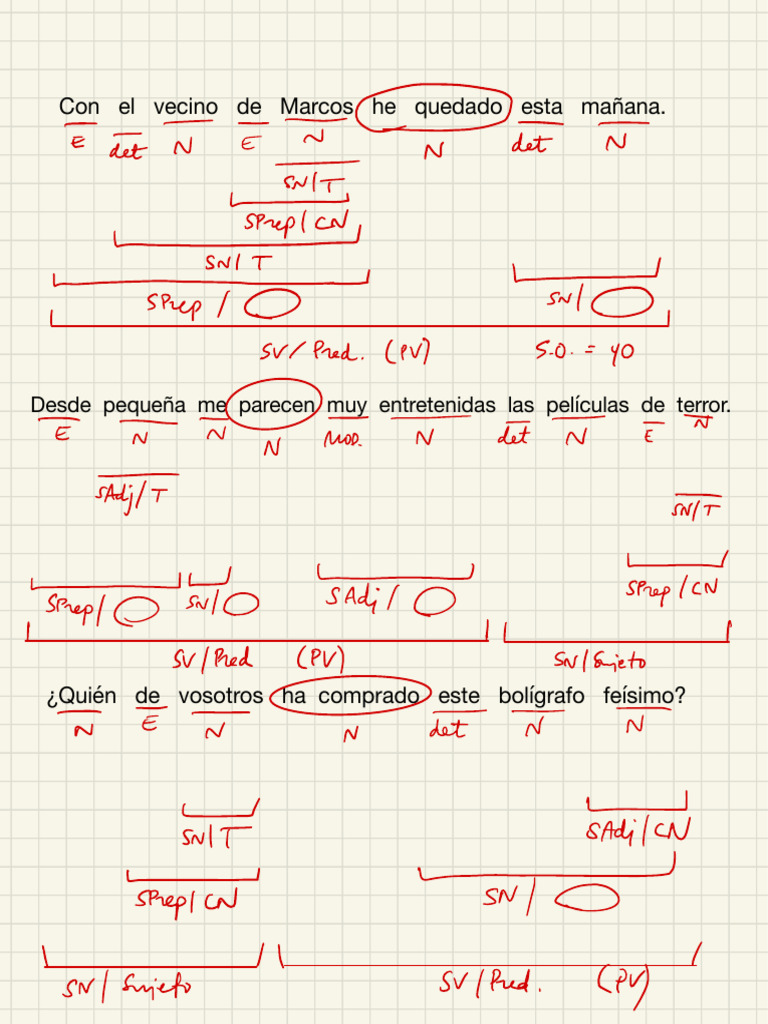 Con el vecino de Marcos he quedado esta mañana.
E det N E N N det N
SN/T
SPrep/CN
SN/T
SPrep/ SN/
SV/Pred. (PV) S.O. = yo
Desde pequeña me parecen muy entretenidas las películas de terror.
E N N N Mod. N det N E N
SAdj/T SN/T
SPrep/CN
SPrep/ SN/ SAdj/
SV/Pred (PV) SN/Sujeto
¿Quién de vosotros ha comprado este bolígrafo feísimo?
N E N N det N N
SN/T SAdj/CN
SPrep/CN SN/
SN/Sujeto SV/Pred. (PV)